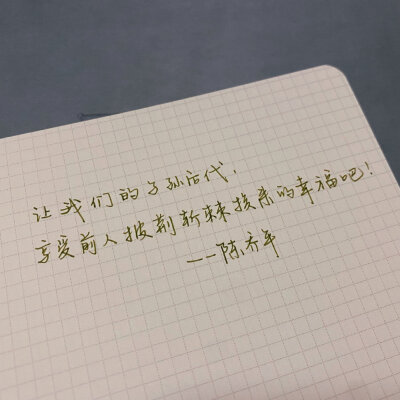 让我们的子孙后代,
享受前人披荆斩棘换来的幸福吧!
——陈乔年